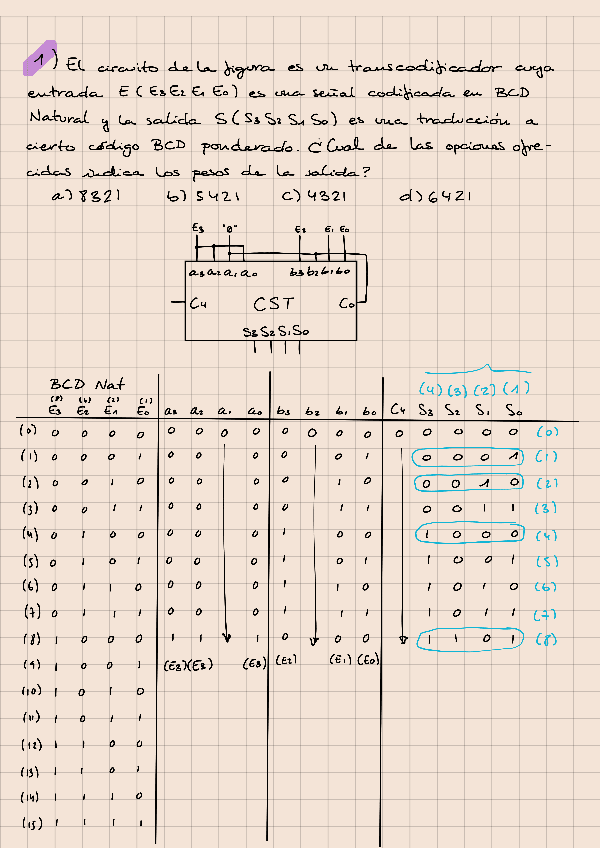 1) El circuito de la figura es un transcodificador cuya
entrada E (E3 E2 E1 E0) es una señal codificada en BCD
Natural y la salida S (S3 S2 S1 S0) es una traducción a
cierto código BCD ponderado. ¿Cual de las opciones ofre-
cidas indica los pesos de la salida?
a) 8321 b) 5421 c) 4321 d) 6421
E3 "0" E3 E1 E0
a3 a2 a1 a0 b3 b2 b1 b0
C4 CST C0
S3 S2 S1 S0
BCD Nat
(8) (4) (2) (1) (4) (3) (2) (1)
E3 E2 E1 E0 a3 a2 a1 a0 b3 b2 b1 b0 C4 S3 S2 S1 S0
(0) 0 0 0 0 0 0 0 0 0 0 0 0 0 0 0 0 0 (0)
(1) 0 0 0 1 0 0 0 0 0 1 0 0 0 1 (1)
(2) 0 0 1 0 0 0 0 0 1 0 0 0 1 0 (2)
(3) 0 0 1 1 0 0 0 0 1 1 0 0 1 1 (3)
(4) 0 1 0 0 0 0 0 1 0 0 1 0 0 0 (4)
(5) 0 1 0 1 0 0 0 1 0 1 1 0 0 1 (5)
(6) 0 1 1 0 0 0 0 1 1 0 1 0 1 0 (6)
(7) 0 1 1 1 0 0 0 1 1 1 1 0 1 1 (7)
(8) 1 0 0 0 1 1 1 0 0 0 1 1 0 1 (8)
(9) 1 0 0 1 (E3) (E3) (E3) (E2) (E1) (E0)
(10) 1 0 1 0
(11) 1 0 1 1
(12) 1 1 0 0
(13) 1 1 0 1
(14) 1 1 1 0
(15) 1 1 1 1